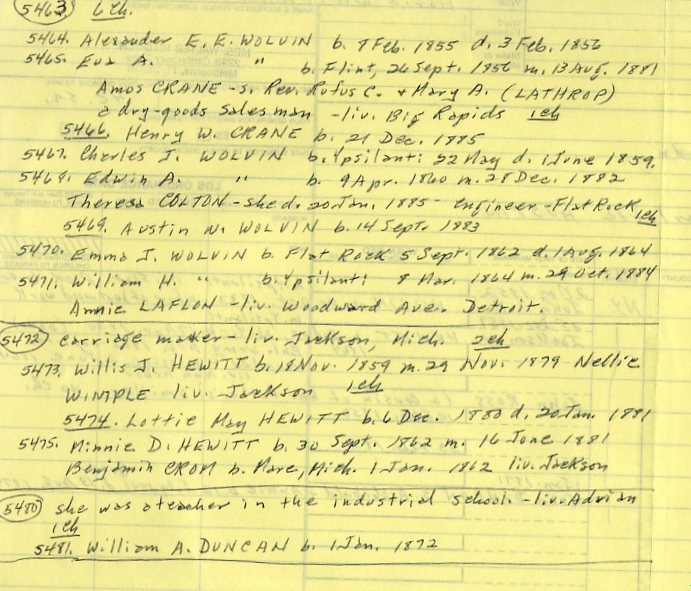 5463 6 ch.
5464. Alexander E. E. WOLVIN b. 8 Feb. 1855 d. 3 Feb. 1856
5465. Eva A. " b. Flint, 26 Sept. 1856 m. 13 Aug. 1881
Amos CRANE - s. Rev. Rufus C. + Mary A. (LATHROP)
a dry-goods salesman - liv. Big Rapids 1ch
5466. Henry W. CRANE b. 21 Dec. 1885
5467. Charles J. WOLVIN b. Ypsilanti 22 May d. 1 June 1859.
5468. Edwin A. " b. 9 Apr. 1860 m. 28 Dec. 1882
Theresa COLTON - she d. 20 Jan. 1885 - engineer - Flat Rock 1ch
5469. Austin W. WOLVIN b. 14 Sept. 1883
5470. Emma J. WOLVIN b. Flat Rock 5 Sept. 1862 d. 1 Aug. 1864
5471. William H. " b. Ypsilanti 8 Mar. 1864 m. 29 Oct. 1884
Annie LAFLON - liv. Woodward Ave. Detroit.
5472 carriage maker - liv. Jackson, Mich. 2ch
5473. Willis J. HEWITT b. 18 Nov. 1859 m. 29 Nov. 1879 Nellie
WIMPLE liv. Jackson 1ch
5474. Lottie May HEWITT b. 6 Dec. 1880 d. 20 Jan. 1881
5475. Minnie D. HEWITT b. 30 Sept. 1862 m. 16 June 1881
Benjamin CROM b. Mich. 1 Jan. 1862 liv. Jackson
5480 she was a teacher in the industrial school. - liv. Adrian
1ch
5481. William A. DUNCAN b. 1 Jan. 1872